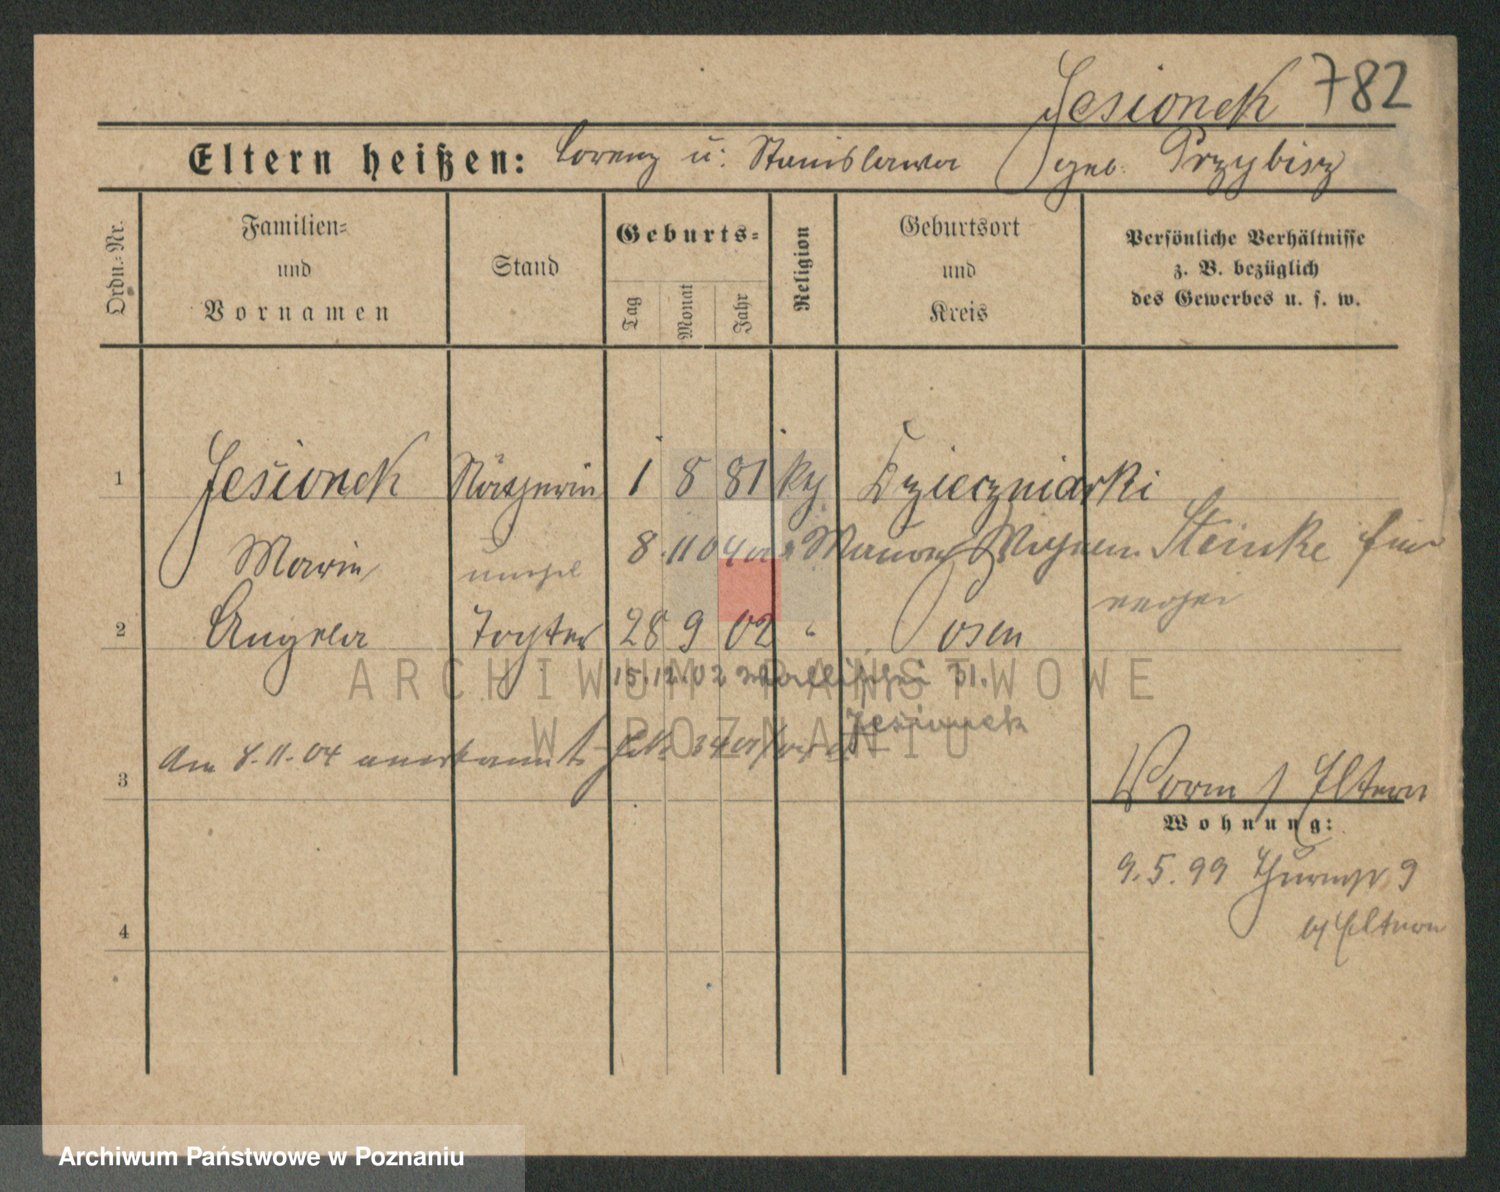 Jesionek 782
Eltern heißen: Lorenz u. Stanislawa geb. Przybisz
Ordn.-Nr.
Familien=
und
Vornamen
Stand
Geburts=
Tag
Monat
Jahr
Religion
Geburtsort
und
Kreis
Persönliche Verhältnisse
z. B. bezüglich
des Gewerbes u. s. w.
1 Jesionek Nätherin 1 8 81 Dzieczniarki
Marie 8. 11 04 Steinke
2 Angela Tochter 28 9 02 " Posen
15. 12. 02 Wallischei 31.
Jesionek
Am 8. 11. 04 anerkannt
3
Vorm / Eltern
Wohnung:
9. 5. 99 9
Eltern
4
ARCHIWUM PAŃSTWOWE
W POZNANIU
Archiwum Państwowe w Poznaniu